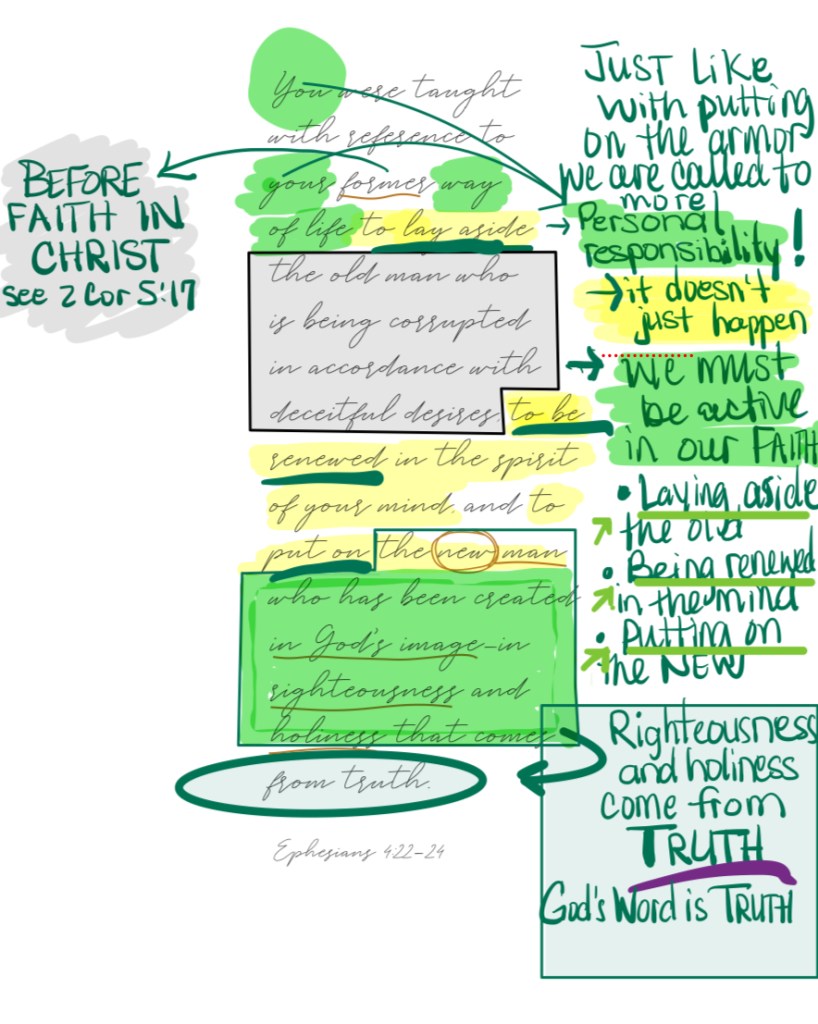 You were taught
with reference to
your former way
of life to lay aside
the old man who
is being corrupted
in accordance with
deceitful desires, to be
renewed in the spirit
of your mind, and to
put on the new man
who has been created
in God's image–in
righteousness and
holiness that comes
from truth.
Ephesians 4:22–24
BEFORE
FAITH IN
CHRIST
see 2 Cor 5:17
JUST LIKE
with putting
on the armor
we are called to
more!
Personal
responsibility!
it doesn't
just happen
We must
be active
in our FAITH
• Laying aside
the old
• Being renewed
in the mind
• Putting on
the NEW
Righteousness
and holiness
come from
TRUTH
God's Word is TRUTH